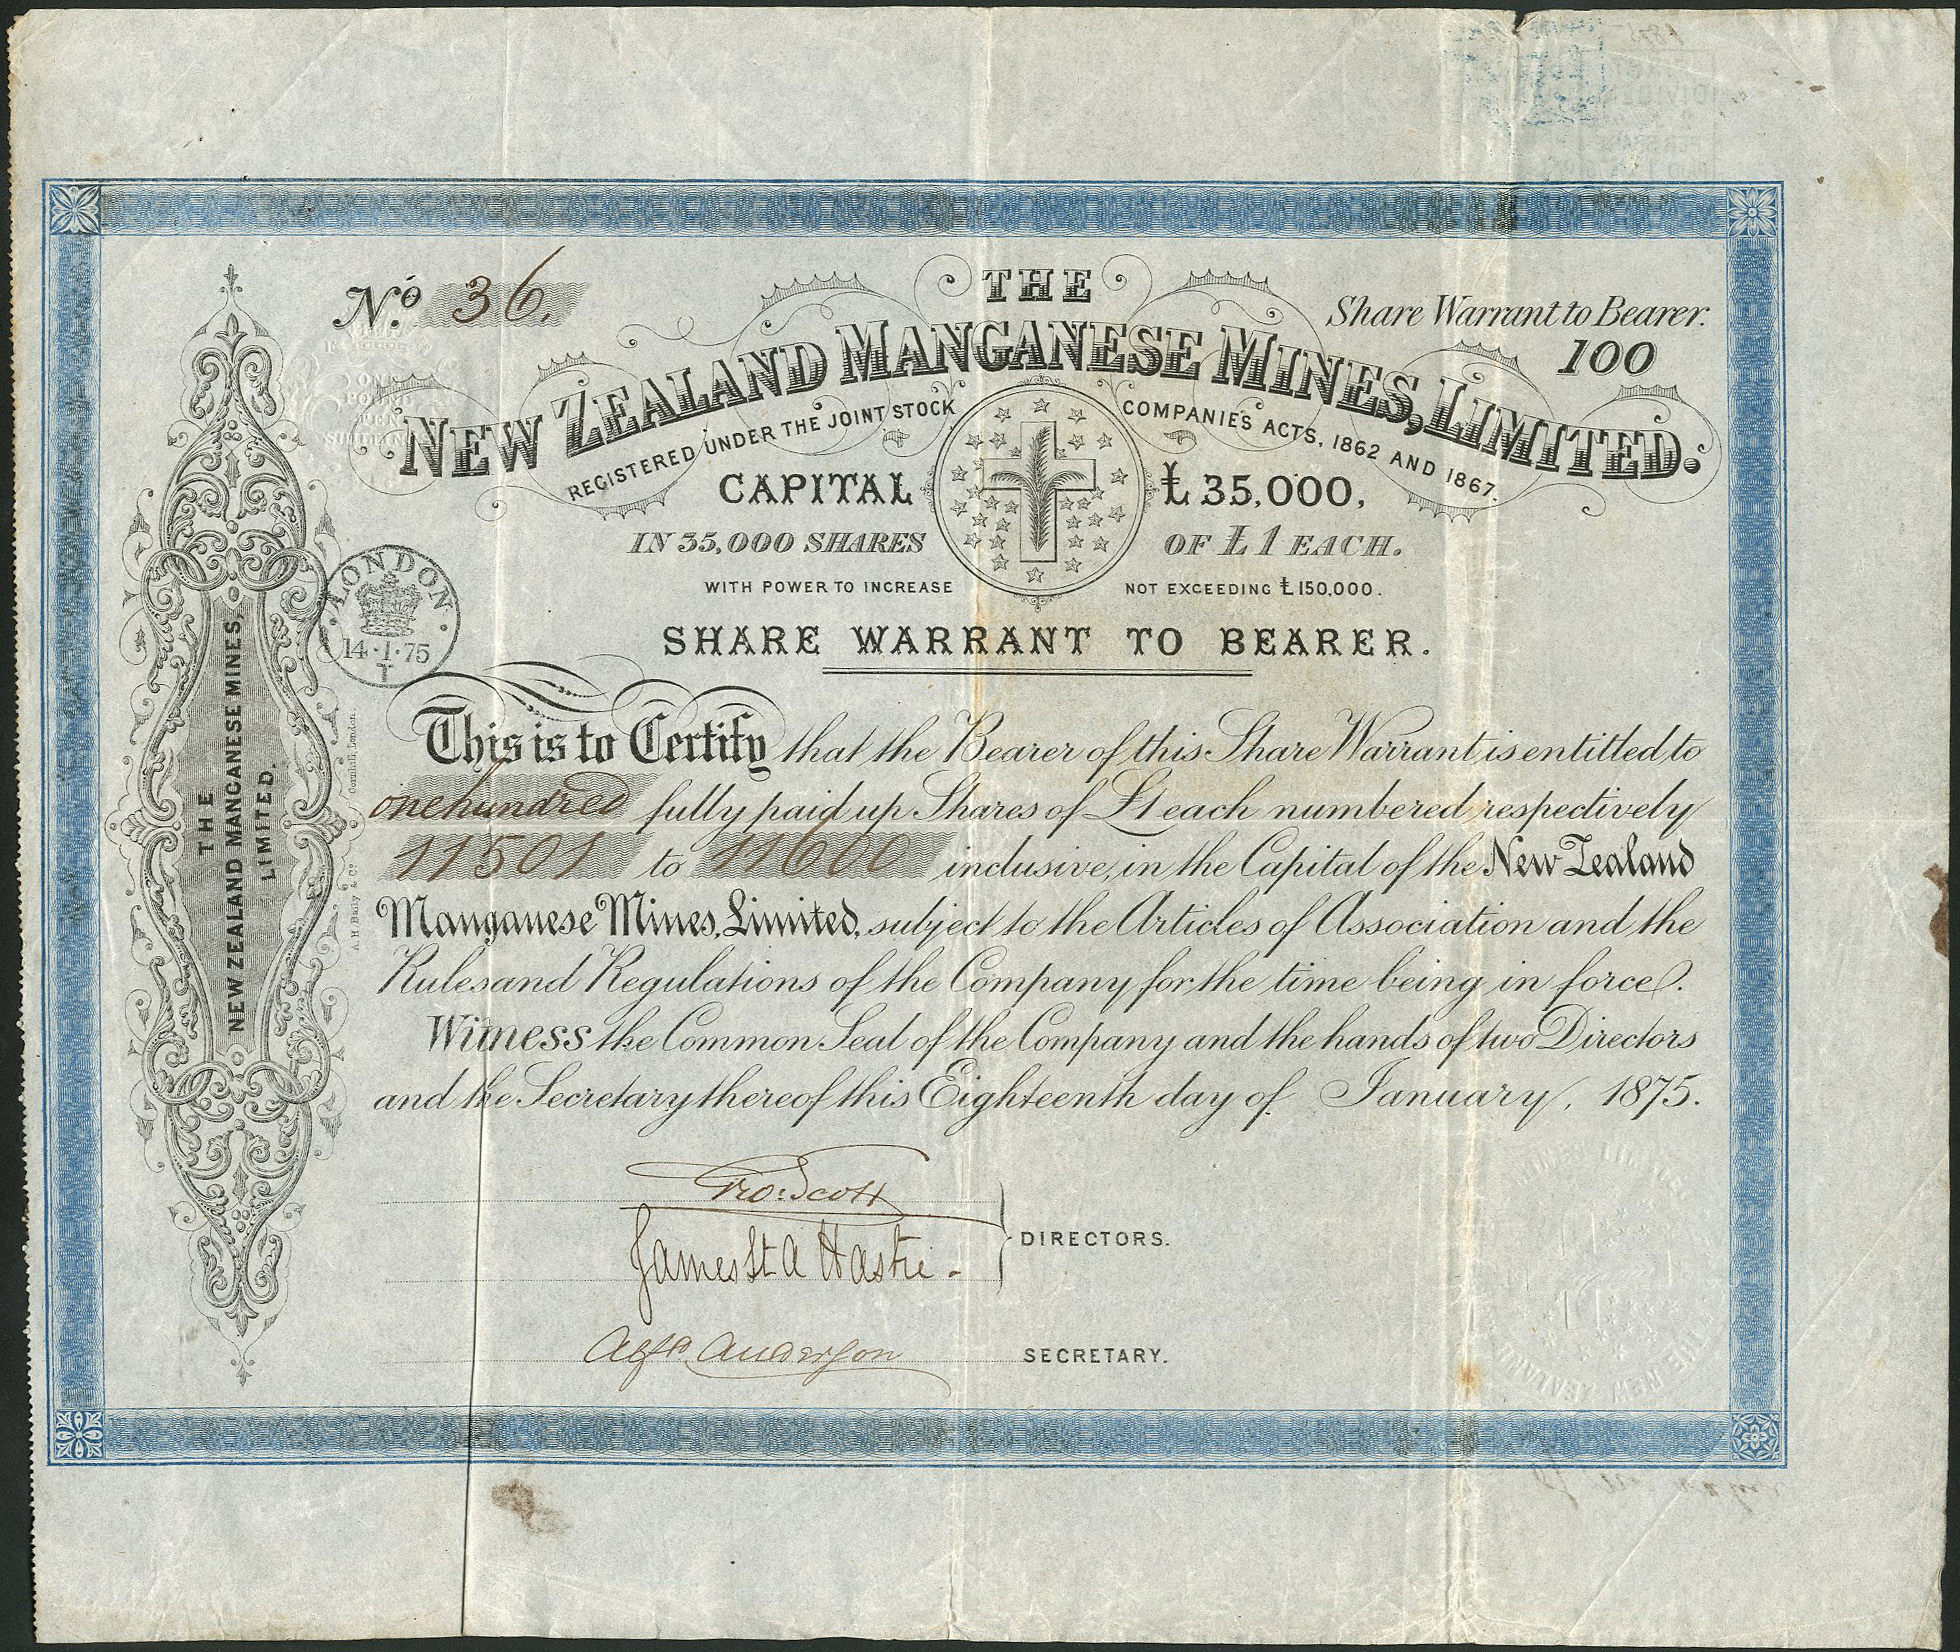 No. 36.
THE
Share Warrant to Bearer.
100
NEW ZEALAND MANGANESE MINES, LIMITED.
REGISTERED UNDER THE JOINT STOCK COMPANIES ACTS, 1862 AND 1867.
CAPITAL £35,000,
IN 35,000 SHARES OF £1 EACH.
WITH POWER TO INCREASE NOT EXCEEDING £150,000.
SHARE WARRANT TO BEARER.
ONE
POUND
TEN
SHILLINGS
LONDON
14·1·75
THE
NEW ZEALAND MANGANESE MINES,
LIMITED.
Cornhill, London.
This is to Certify that the Bearer of this Share Warrant is entitled to
one hundred fully paid up Shares of £1 each numbered respectively
11501 to 11600 inclusive, in the Capital of the New Zealand
Manganese Mines, Limited, subject to the Articles of Association and the
Rules and Regulations of the Company for the time being in force.
Witness the Common Seal of the Company and the hands of two Directors
and the Secretary thereof this Eighteenth day of January, 1875.
Geo: Scott
James St A
DIRECTORS.
Alfd. Anderson
SECRETARY.
THE NEW ZEALAND